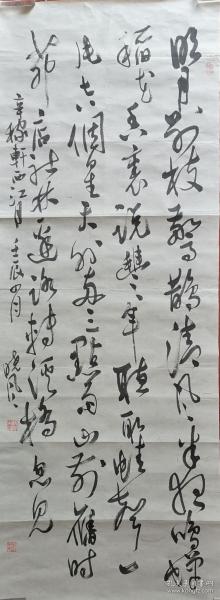 明月别枝惊鹊清风半夜鸣蝉
稻花香里说丰年听取蛙声一
片七八个星天外两三点雨山前旧时
茅店社林边路转溪桥忽见
辛稼轩西江月 壬辰四月 晓风